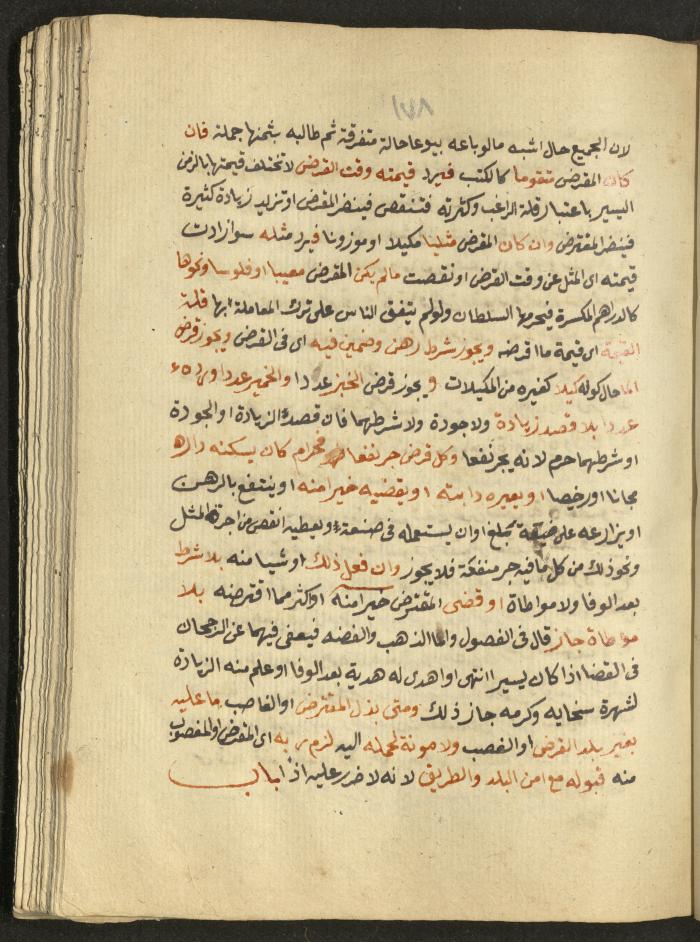 ١٧٨
لان الجميع حال اشبه مالوباعه بيوعا حالة متفرقة ثم طالبه بثمنها جملة فان
كان المقرض متقوما كالكتب فيرد قيمته وقت القرض لا تختلف قيمتها بالزمن
اليسير باعتبار قلة الراغب وكثرته فتنقص فينضر المقرض او تزيد زيادة كثيرة
فينضر المقترض وان كان المقرض مثليا مكيلا او موزونا فيرد مثله سوا زادت
قيمته اى المثل عن وقت القرض او نقصت مالم يكن المقرض معيبا او فلوسا ونحوها
كالدراهم المكسرة فيحرمها السلطان ولو لم يتفق الناس على ترك المعاملة بها فله
القيمة اى قيمة ما اقرضه ويجوز شرط رهن وضمين فيه اى فى القرض ويجوز قرض
الما حال كونه كيلا كغيره من المكيلات ويجوز قرض الخبز عددا والخمير عددا ورده
عددا بلا قصد زيادة ولا جودة ولا شرطهما فان قصد الزيادة او الجودة
او شرطهما حرم لانه يجر نفعا وكل قرض جر نفعا فحرام كان يسكنه داره
مجانا او رخيصا او يعيره دابته او يقضيه خيرا منه او ينتفع بالرهن
او يزارعه على ضيعة او ان يستعمله فى صنعة ويعطيه انقص من اجرة المثل
ونحو ذلك من كل ما فيه جر منفعة فلا يجوز وان فعل ذلك او شيا منه بلا شرط
بعد الوفا ولا مواطاة او قضى المقترض خيرا منه او اكثر مما اقترضه بلا
مواطاة جاز قال فى الفصول واما الذهب والفضه فيعفى فيهما عن الرجحان
فى القضا اذا كان يسيرا انتهى او اهدى له هدية بعد الوفا او علم منه الزيادة
لشهرة سخايه وكرمه جاز ذلك ومتى بذل المقترض او الغاصب ما عليه
بغير بلد القرض او الغصب ولا مونة لحمله اليه لزم ربه اى المقرض او المغصوب
منه قبوله مع امن البلد والطريق لانه لا ضرر عليه اذا باب